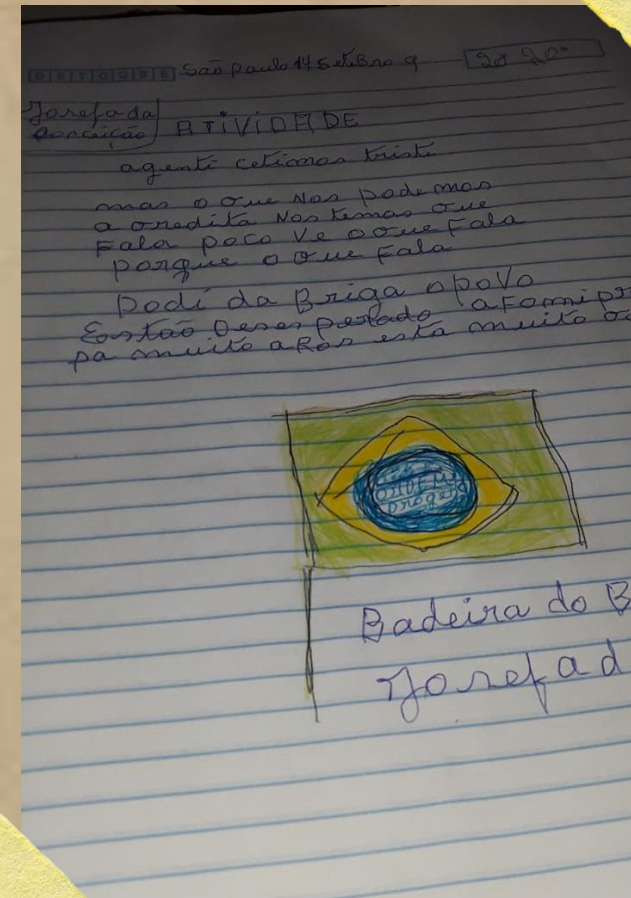 São Paulo 14 setibro 9 20 20
Josefa da
Conceição
ATiViDADE
agenti cetimos triste
mas o que Nos podemos
a credita Nos temos que
Fala poco Ve o que Fala
porque o que Fala
podi da Briga o poVo
Eostão Desesperado a Fomi pr
pa muito apos esta muito
ORDEM
Progers
Badeira do B
Josefa d